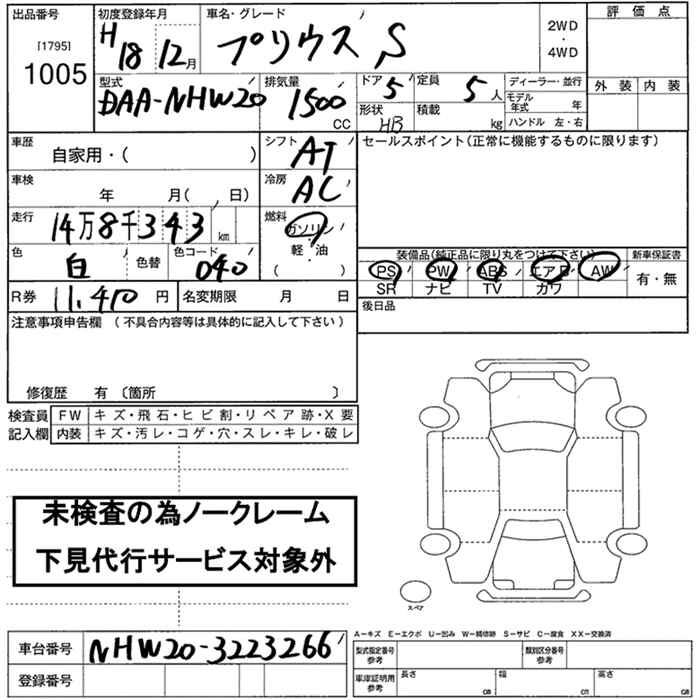 出品番号 初度登録年月 車名・グレード 評価点
[1795] H 18 12月 プリウス S 2WD・4WD
1005
型式 排気量 ドア 5 定員 5人 ディーラー・並行 外装 内装
DAA-NHW20 1500 CC 形状 HB 積載 kg モデル年式 年
ハンドル 左・右
車歴 シフト セールスポイント(正常に機能するものに限ります)
自家用・( ) AT
車検 冷房
年 月( , 日) AC
走行 燃料
14万8千343 km ガソリン
軽・油
( )
色 色替 色コード 装備品(純正品に限り丸をつけて下さい) 新車保証書
白 040 PS PW ABS エアB AW 有・無
SR ナビ TV カワ
R券 11,410 円 名変期限 月 日 後日品
注意事項申告欄 (不具合内容等は具体的に記入して下さい)
修復歴 有 〔箇所 〕
検査員 FW キズ・飛石・ヒビ割・リペア跡・X要
記入欄 内装 キズ・汚レ・コゲ・穴・スレ・キレ・破レ
未検査の為ノークレーム
下見代行サービス対象外
スペア
A-キズ E-エクボ U-凹み W-補修跡 S-サビ C-腐食 XX-交換済
車台番号 NHW20-3223266
型式指定番号 参考 類別区分番号 参考
登録番号
車庫証明用 参考 長さ cm 幅 cm 高さ cm